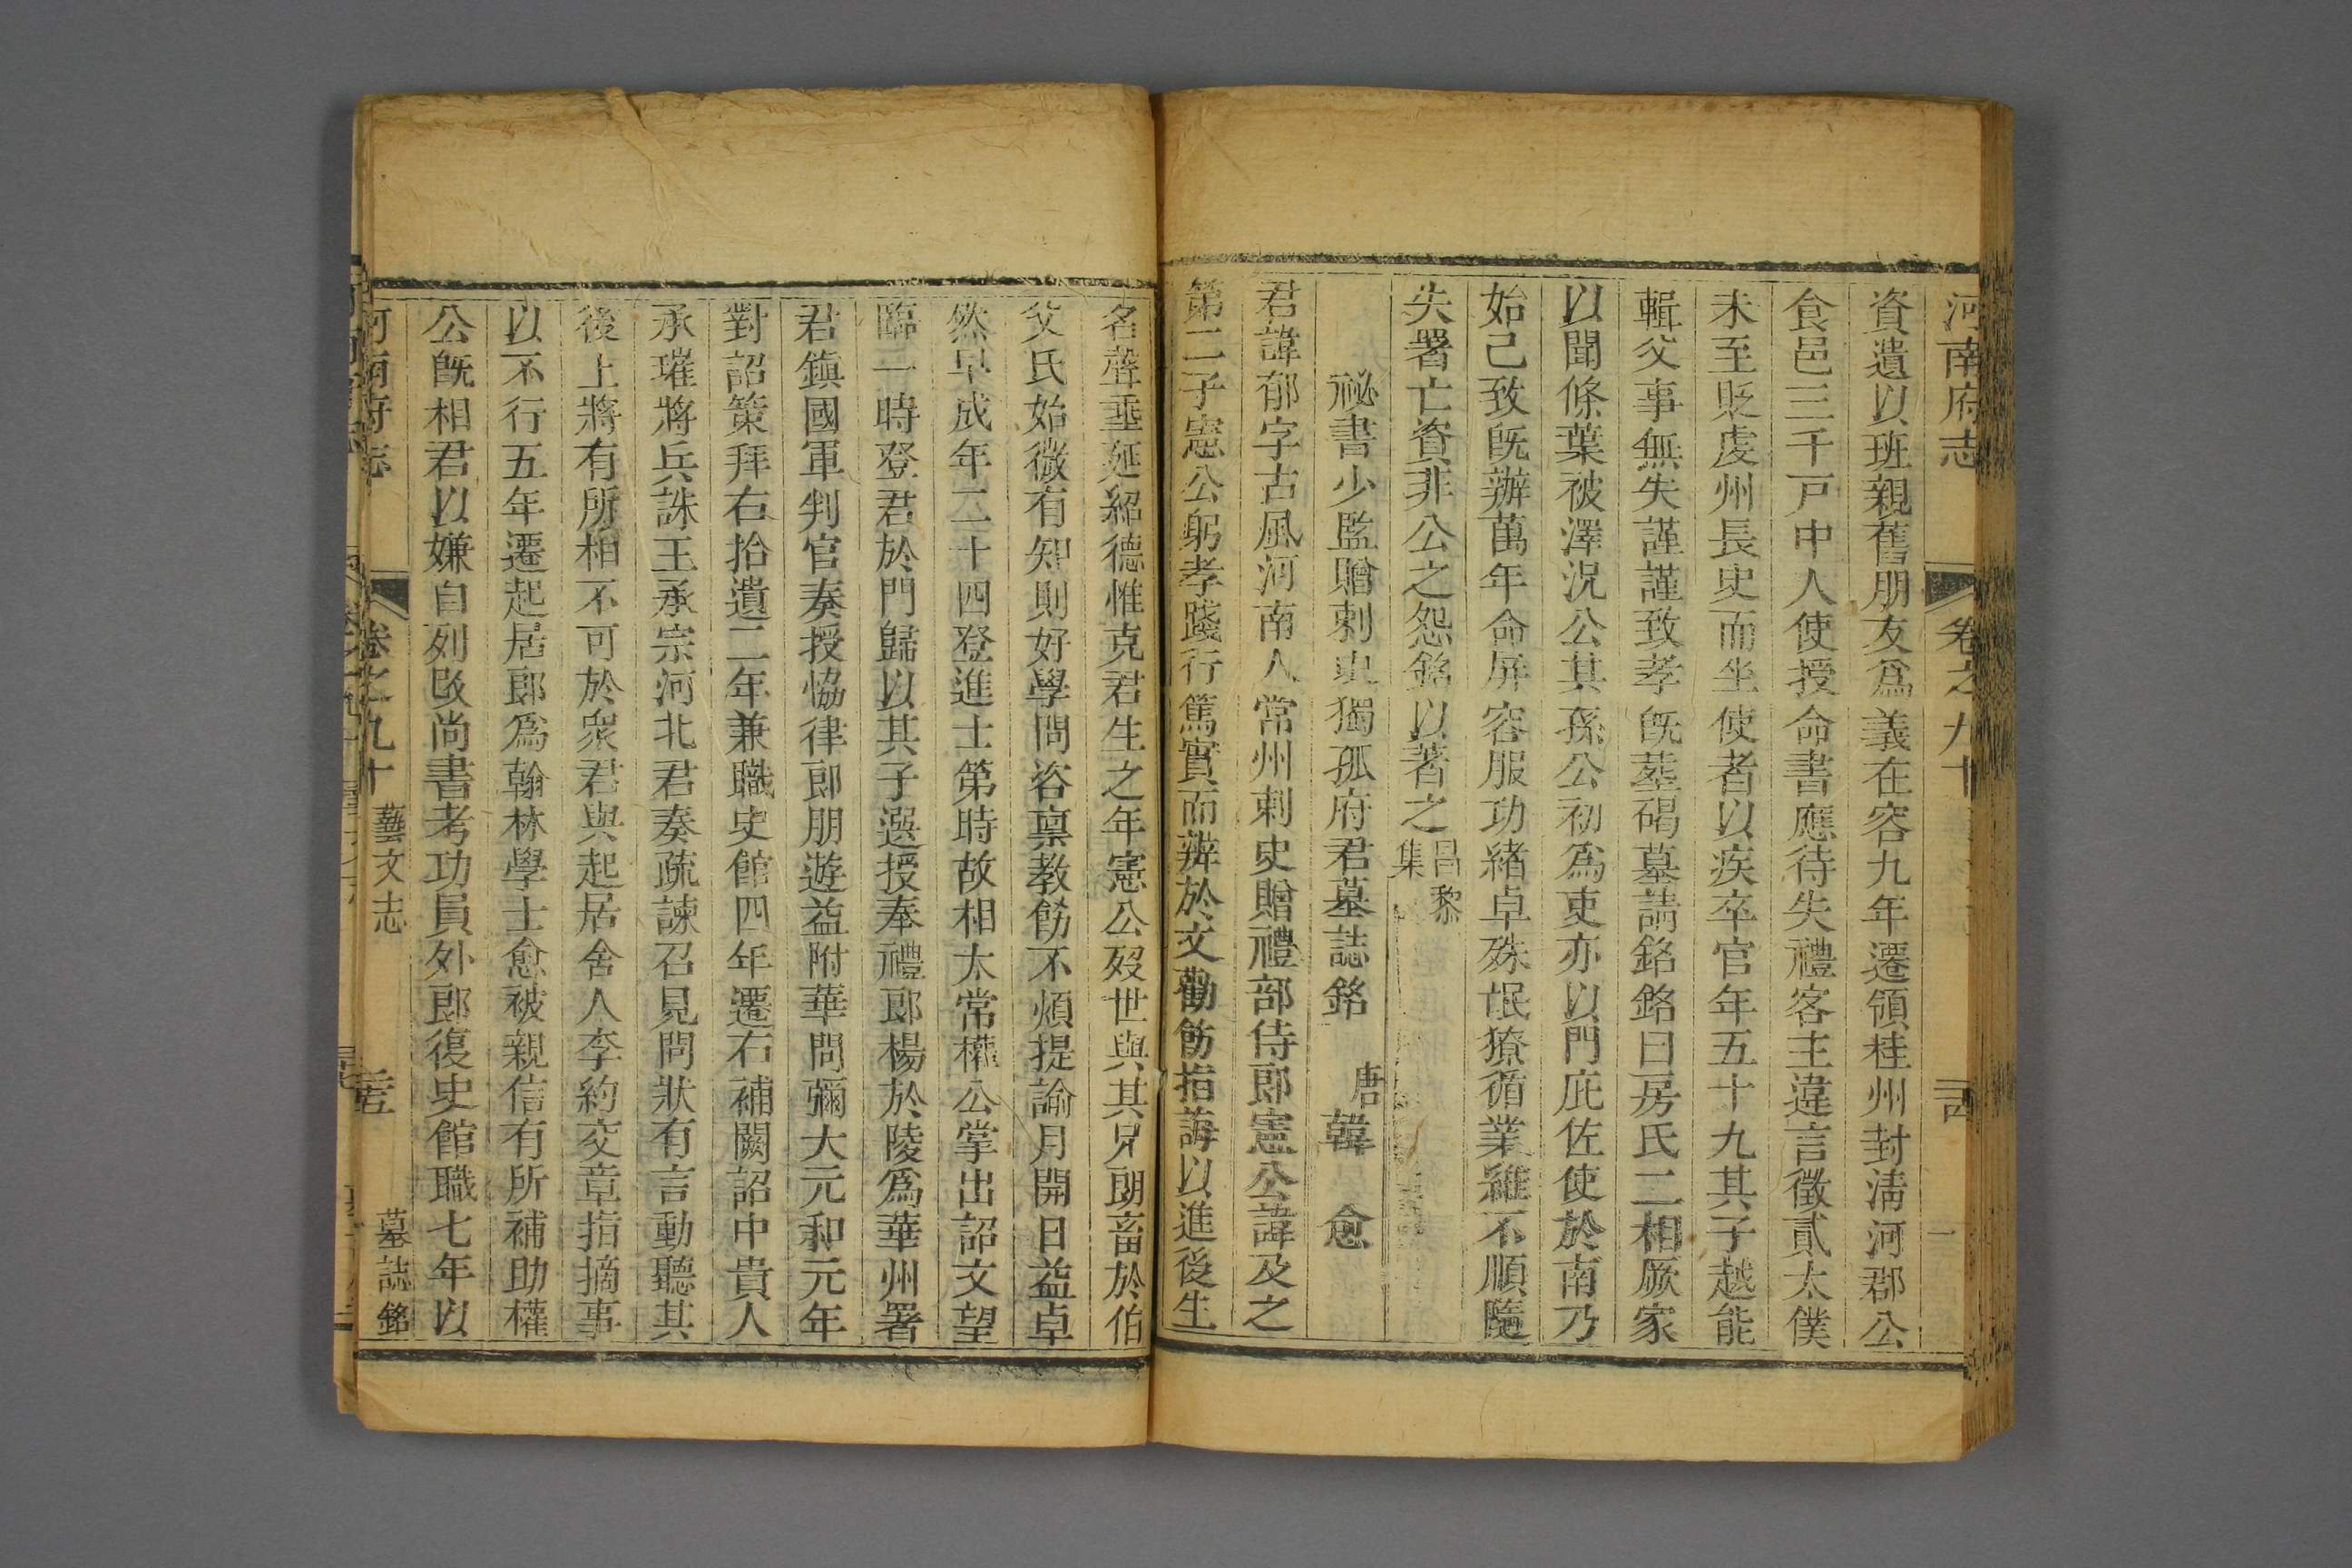 河南府志 卷之九十
資遺以班親舊朋友爲義在容九年遷領桂州封淸河郡公
食邑三千戸中人使授命書應待失禮客主違言徵貳太僕
未至貶虔州長史而坐使者以疾卒官年五十九其子越能
輯父事無失謹謹致孝旣塟碣墓請銘銘曰房氏二相厥家
以聞條葉被澤況公其孫公初爲吏亦以門庇佐使於南乃
始己致旣辦萬年命屏容服功緖卓殊氓獠循業維不順隨
失署亡資非公之怨銘以著之昌黎集
祕書少監贈刺史獨孤府君墓誌銘 唐韓愈
君諱郁字古風河南人常州刺史贈禮部侍郎憲公諱及之
第二子憲公躬孝踐行篤實而辨於文勸飭指誨以進後生
名聲垂延紹德惟克君生之年憲公歿世與其兄朗畜於伯
父氏始微有知則好學問咨稟敎飭不煩提諭月開日益卓
然早成年二十四登進士第時故相太常權公掌出詔文望
臨一時登君於門歸以其子選授奉禮郎楊於陵爲華州署
君鎭國軍判官奏授恊律郎朋遊益附華問彌大元和元年
對詔策拜右拾遺二年兼職史館四年遷右補闕詔中貴人
承璀將兵誅王承宗河北君奏疏諫召見問狀有言動聽其
後上將有所相不可於衆君與起居舍人李約交章指摘事
以不行五年遷起居郎爲翰林學士愈被親信有所補助權
公旣相君以嫌自列改尚書考功員外郎復史館職七年以
河南府志 卷之九十 藝文志 墓誌銘